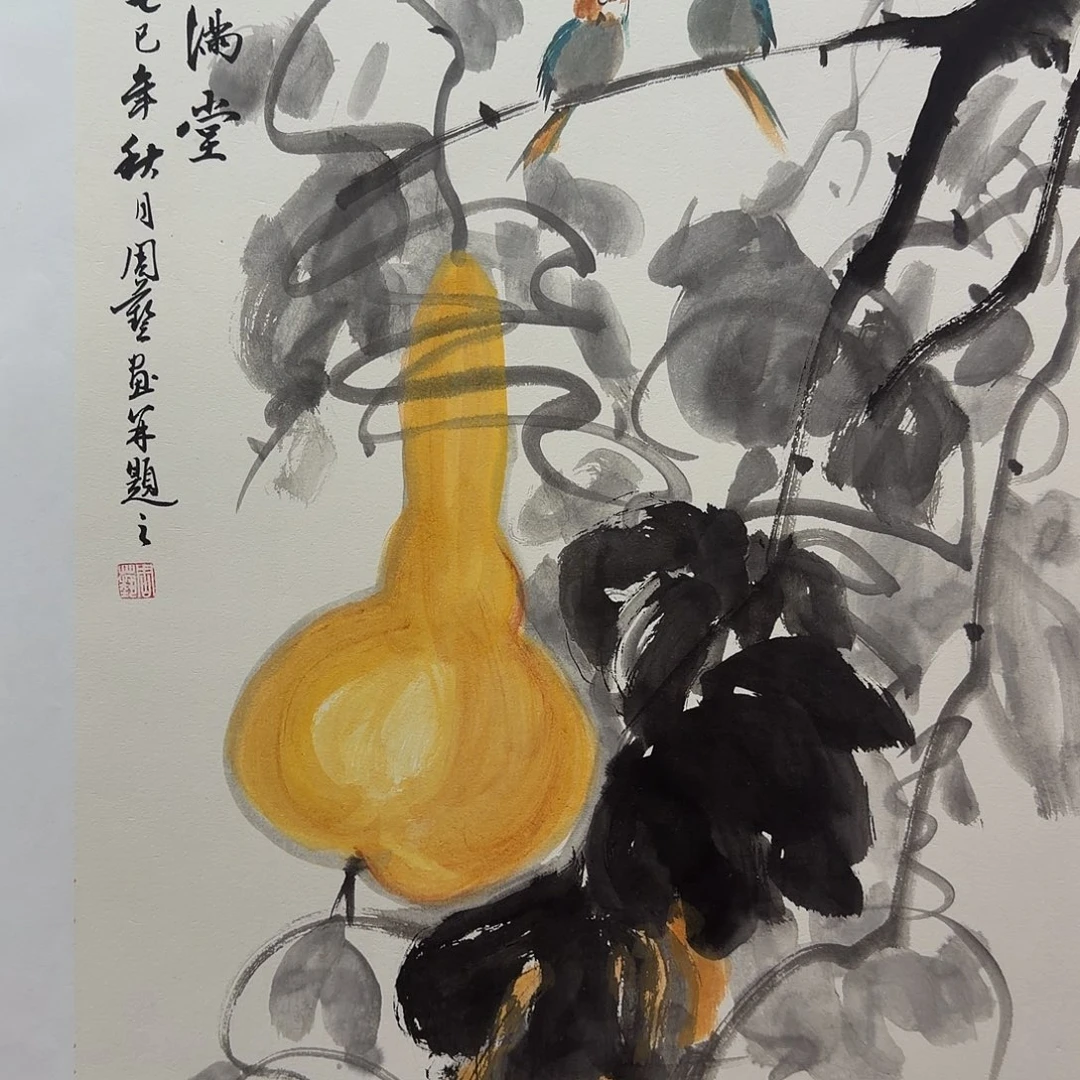 满堂
乙巳年秋月周艺画并题之